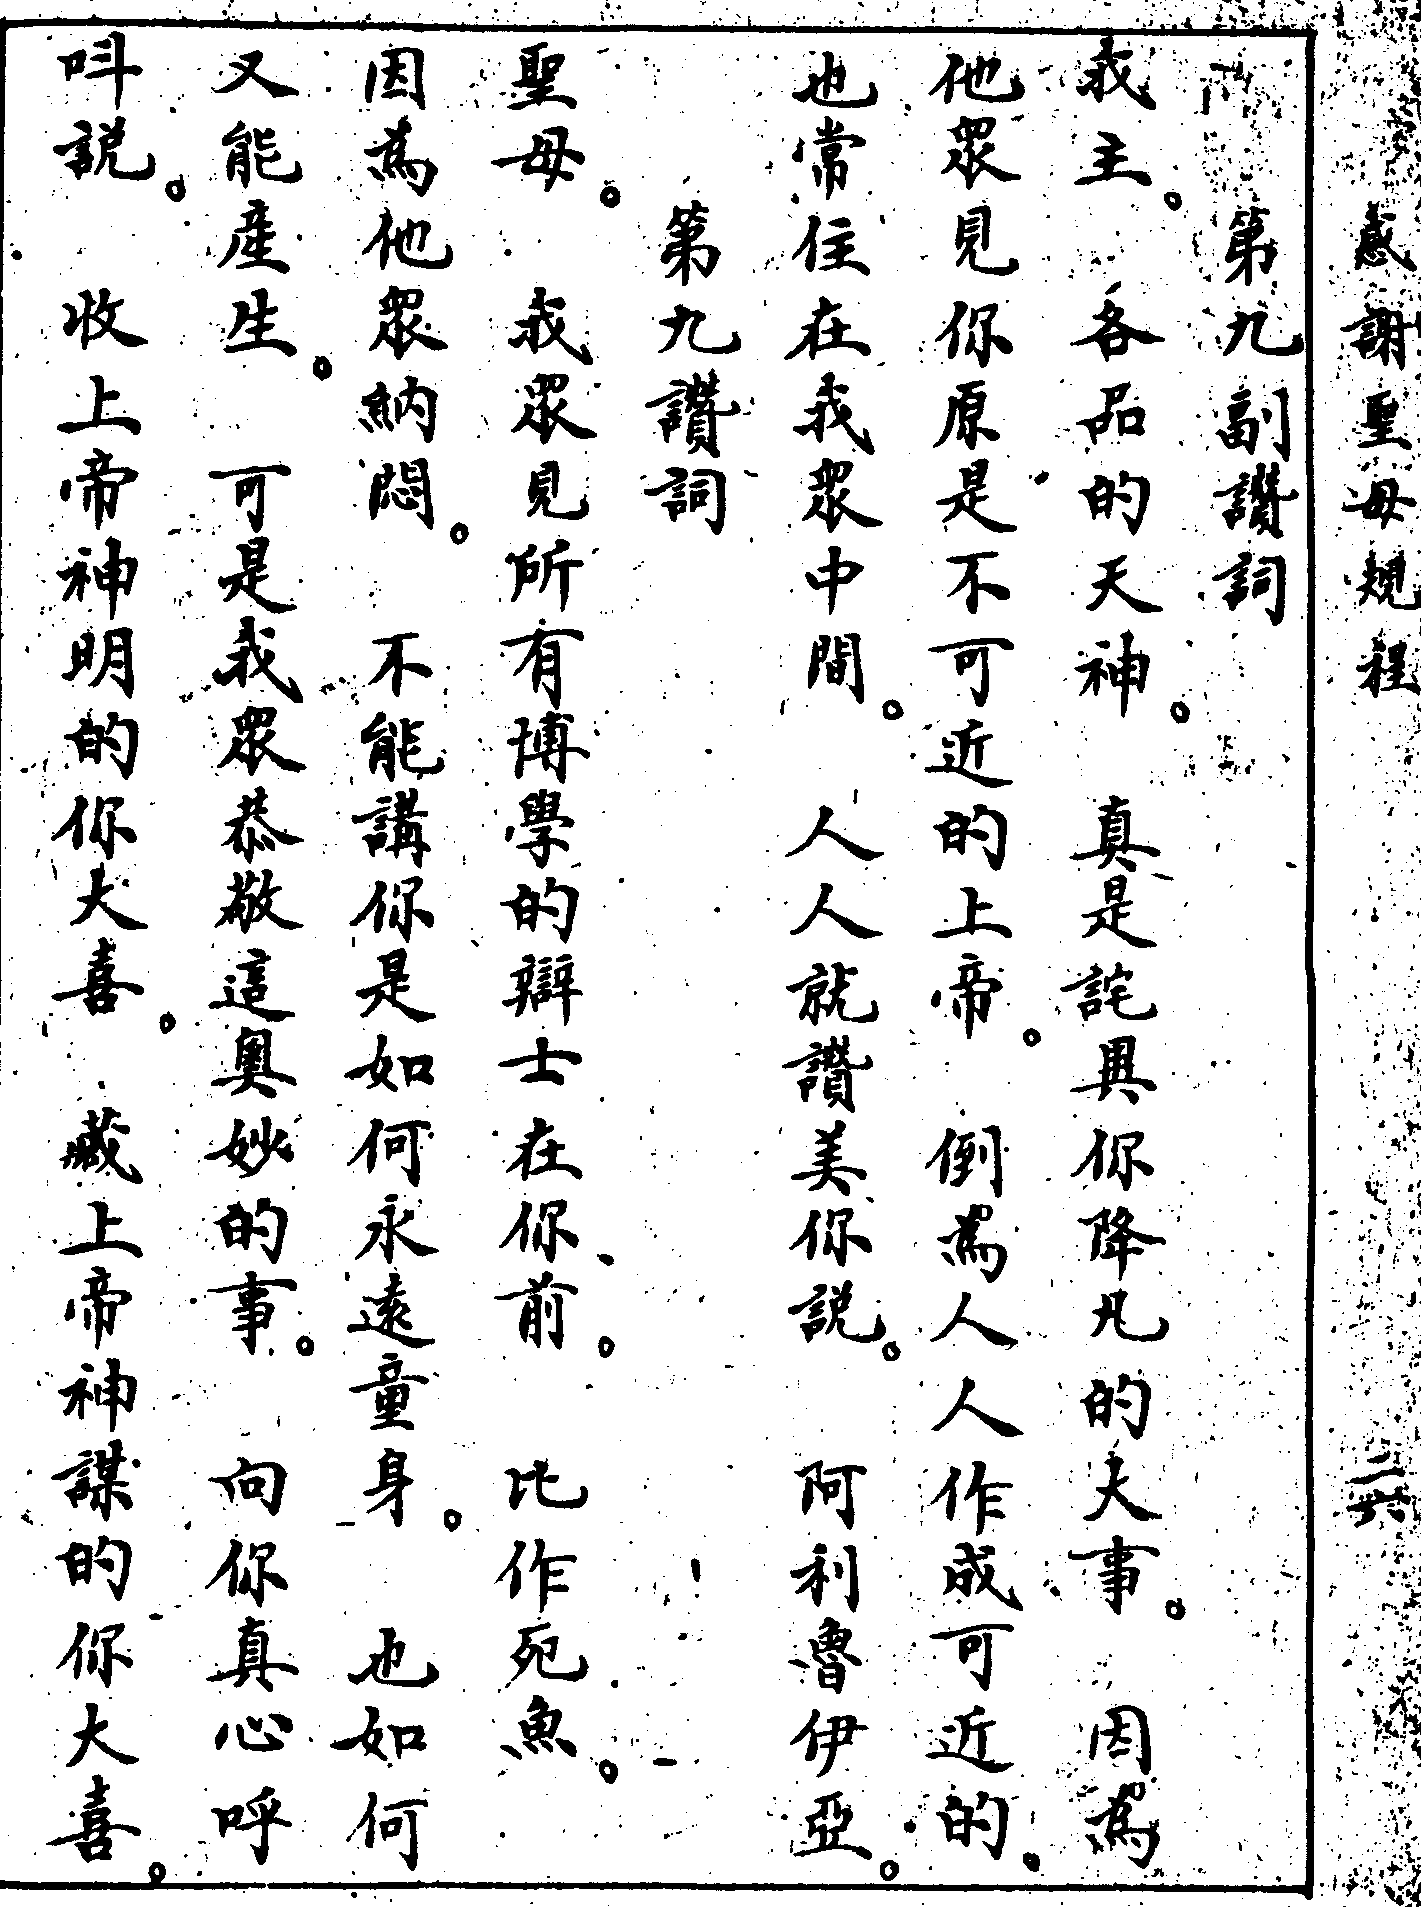 感謝聖母規程　二六
第九副讚詞
我主。各品的天神。真是詫異你降凡的大事。因為
他眾見你原是不可近的上帝。倒為人人作成可近的。
也常住在我眾中間。人人就讚美你說。阿利魯伊亞。
第九讚詞
聖母。我眾見所有博學的辯士在你前。比作死魚。
因為他眾納悶。不能講你是如何永遠童身。也如何
又能產生。可是我眾恭敬這奧妙的事。向你真心呼
呌說。收上帝神明的你大喜。藏上帝神謀的你大喜。